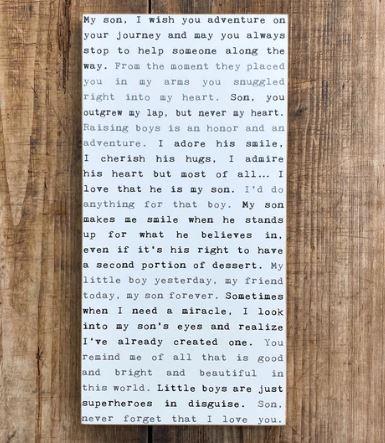 My son, I wish you adventure on
your journey and may you always
stop to help someone along the
way. From the moment they placed
you in my arms you snuggled
right into my heart. Son, you
outgrew my lap, but never my heart.
Raising boys is an honor and an
adventure. I adore his smile,
I cherish his hugs, I admire
his heart but most of all... I
love that he is my son. I'd do
anything for that boy. My son
makes me smile when he stands
up for what he believes in,
even if it's his right to have
a second portion of dessert. My
little boy yesterday, my friend
today, my son forever. Sometimes
when I need a miracle, I look
into my son's eyes and realize
I've already created one. You
remind me of all that is good
and bright and beautiful in
this world. Little boys are just
superheroes in disguise. Son,
never forget that I love you.